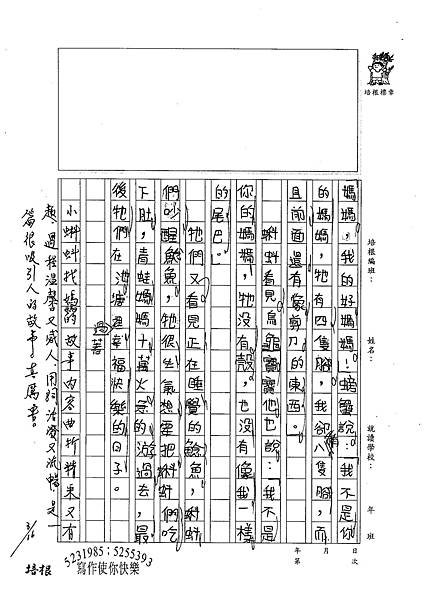 培根標章
培根編班：
姓名：
就讀學校：
年　班
年　月　日
第　次
媽媽，我的好媽媽！」螃蟹說：「我不是你
的媽媽，牠有四隻腳，我卻八隻腳，而
且前面還有像剪刀的東西。」
蝌蚪看見烏龜寶寶，他也說：「我不是
你的媽媽，牠沒有殼，也沒有像我一樣
的尾巴。」
牠們又看見正在睡覺的鯰魚，蝌蚪
們吵醒鯰魚，牠很生氣想要把蝌蚪們吃
下肚，青蛙媽媽十萬火急的游過去，最
後牠們在池塘裡幸福快樂的日子。
過著
小蝌蚪找媽媽的故事內容曲折精采又有
趣，過程溫馨又感人；用詞活潑又流暢，是一
篇很吸引人的故事。
3/16
5231985；5255393
寫作使你快樂
培根